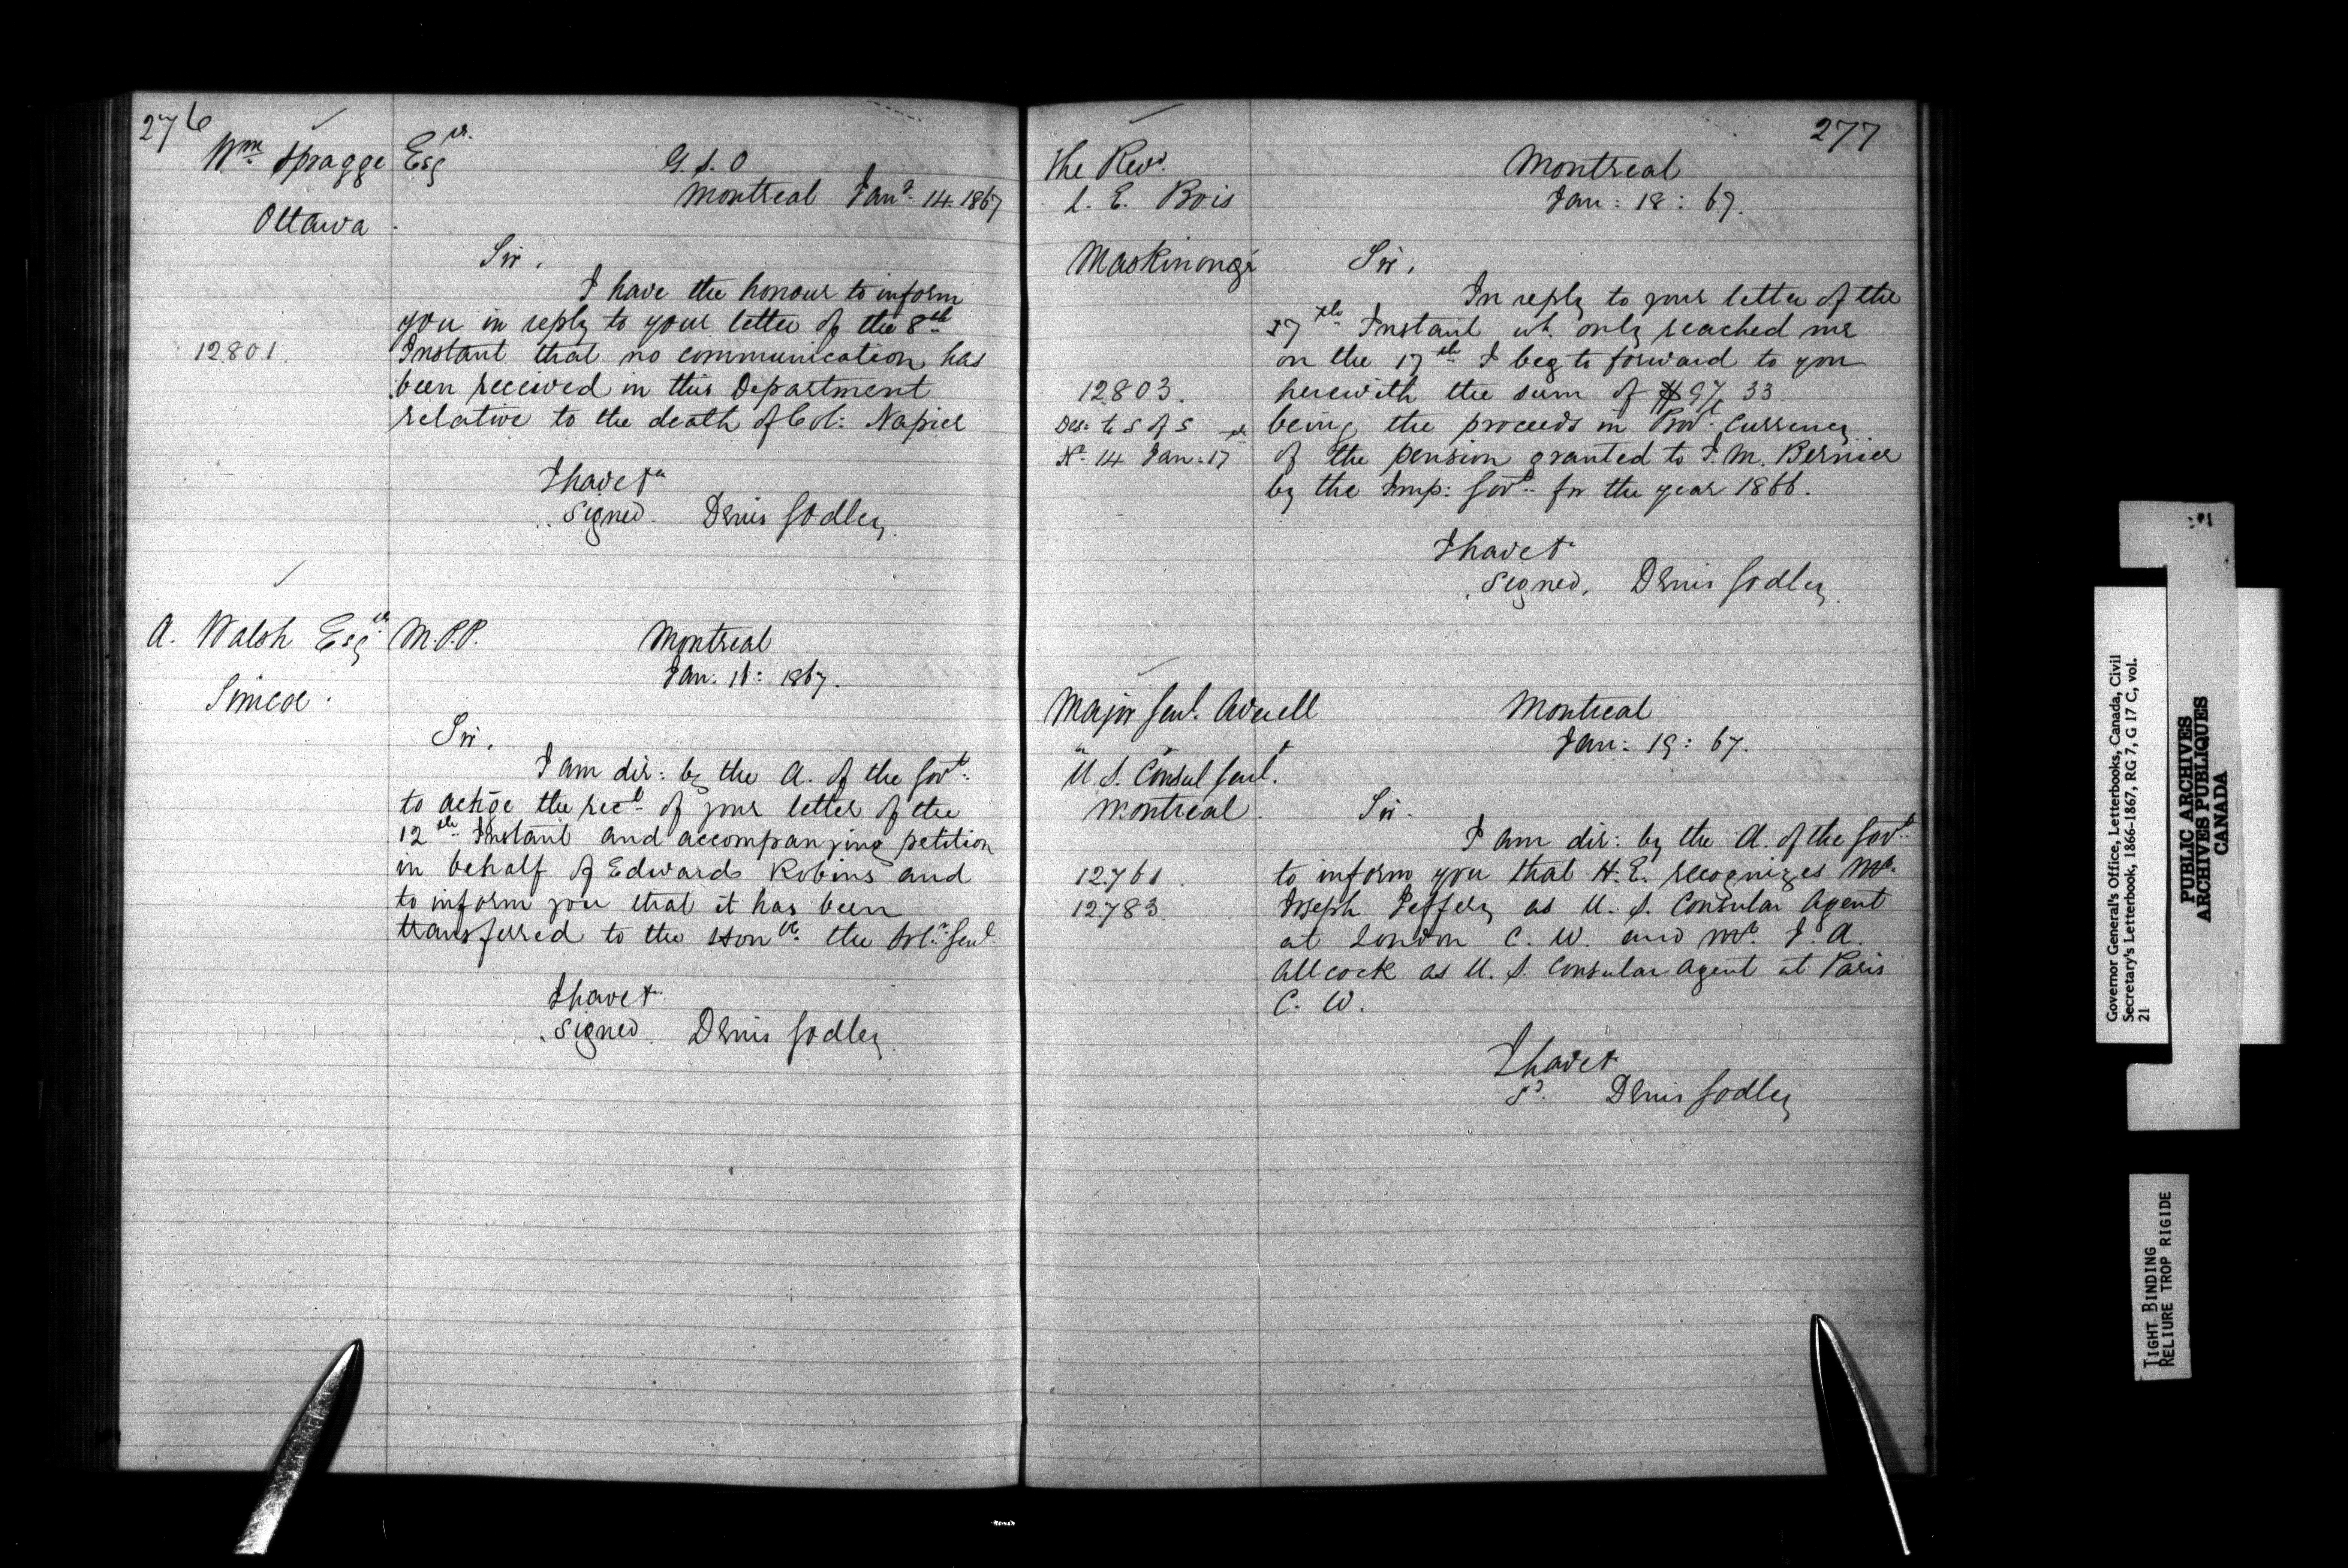 276
Wm. Spragge Esqr.
G. S. O
Montreal Jany. 14. 1867
Ottawa.
Sir,
I have the honour to inform
you in reply to your letter of the 8th
12801.
Instant that no communication has
been received in this Department
relative to the death of Col: Napier
I have &c
Signed. Denis Godley.
A. Walsh Esqr. M.P.P.
Montreal
Jan: 16: 1867.
Simcoe.
Sir,
I am dir: by the A. of the Govt.
to ackge the rect. of your letter of the
12th Instant and accompanying petition
in behalf of Edward Robins and
to inform you that it has been
transferred to the Honble. the Solr. Genl.
I have &c
Signed. Denis Godley.
277
The Revd.
L. E. Bois
Montreal
Jan: 18: 67.
Maskinongé
Sir,
In reply to your letter of the
7th Instant wh. only reached me
on the 17th I beg to forward to you
12803.
herewith the sum of $97. 33
Des: to S of S
being the proceeds in Prov. Currency
No. 14 Jan: 17
of the pension granted to J. M. Bernier
by the Imp: Govt. for the year 1866.
I have &c
Signed. Denis Godley.
Major Genl. Averell
Montreal
Jan: 19: 67.
U. S. Consul Genl.
Montreal.
Sir.
I am dir: by the A. of the Govt.
12.761.
to inform you that H. E. recognizes Mr.
12783.
Joseph Jeffery as U. S. Consular Agent
at London C. W. and Mr. J. A.
Allcock as U. S. Consular Agent at Paris
C. W.
I have &c
Sd. Denis Godley
Governor General's Office, Letterbooks, Canada, Civil
Secretary's Letterbook, 1866-1867, RG 7, G 17 C, vol.
21
PUBLIC ARCHIVES
ARCHIVES PUBLIQUES
CANADA
TIGHT BINDING
RELIURE TROP RIGIDE